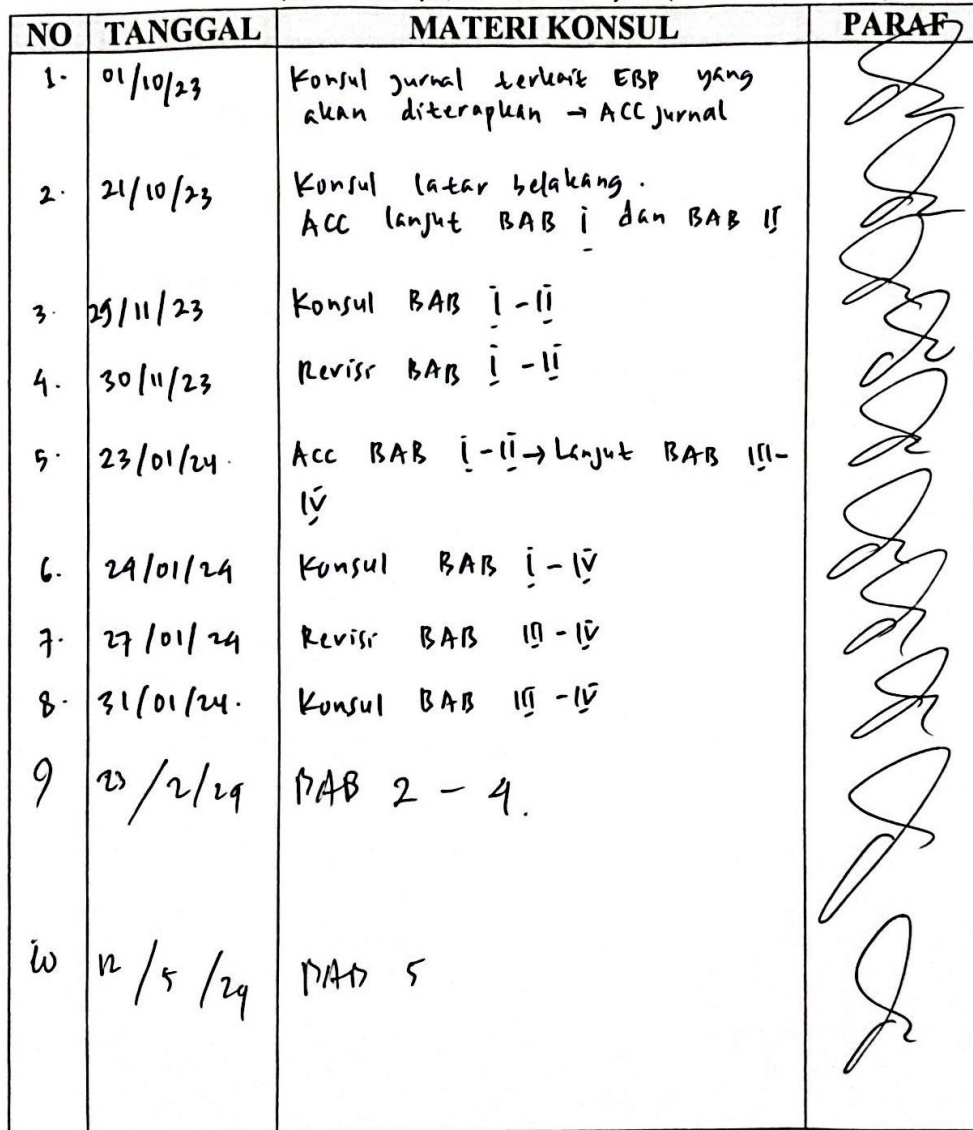 NO TANGGAL MATERI KONSUL PARAF
1. 01/10/23 Konsul jurnal terkait EBP yang
akan diterapkan → ACC jurnal
2. 21/10/23 Konsul latar belakang.
ACC lanjut BAB I dan BAB II
3. 29/11/23 Konsul BAB I - II
4. 30/11/23 Revisi BAB I - II
5. 23/01/24. Acc BAB I - II → Lanjut BAB III-
IV
6. 24/01/24 Konsul BAB I - IV
7. 27/01/24 Revisi BAB III - IV
8. 31/01/24. Konsul BAB III - IV
9 23/2/24 BAB 2 - 4.
10 12/5/24 BAB 5